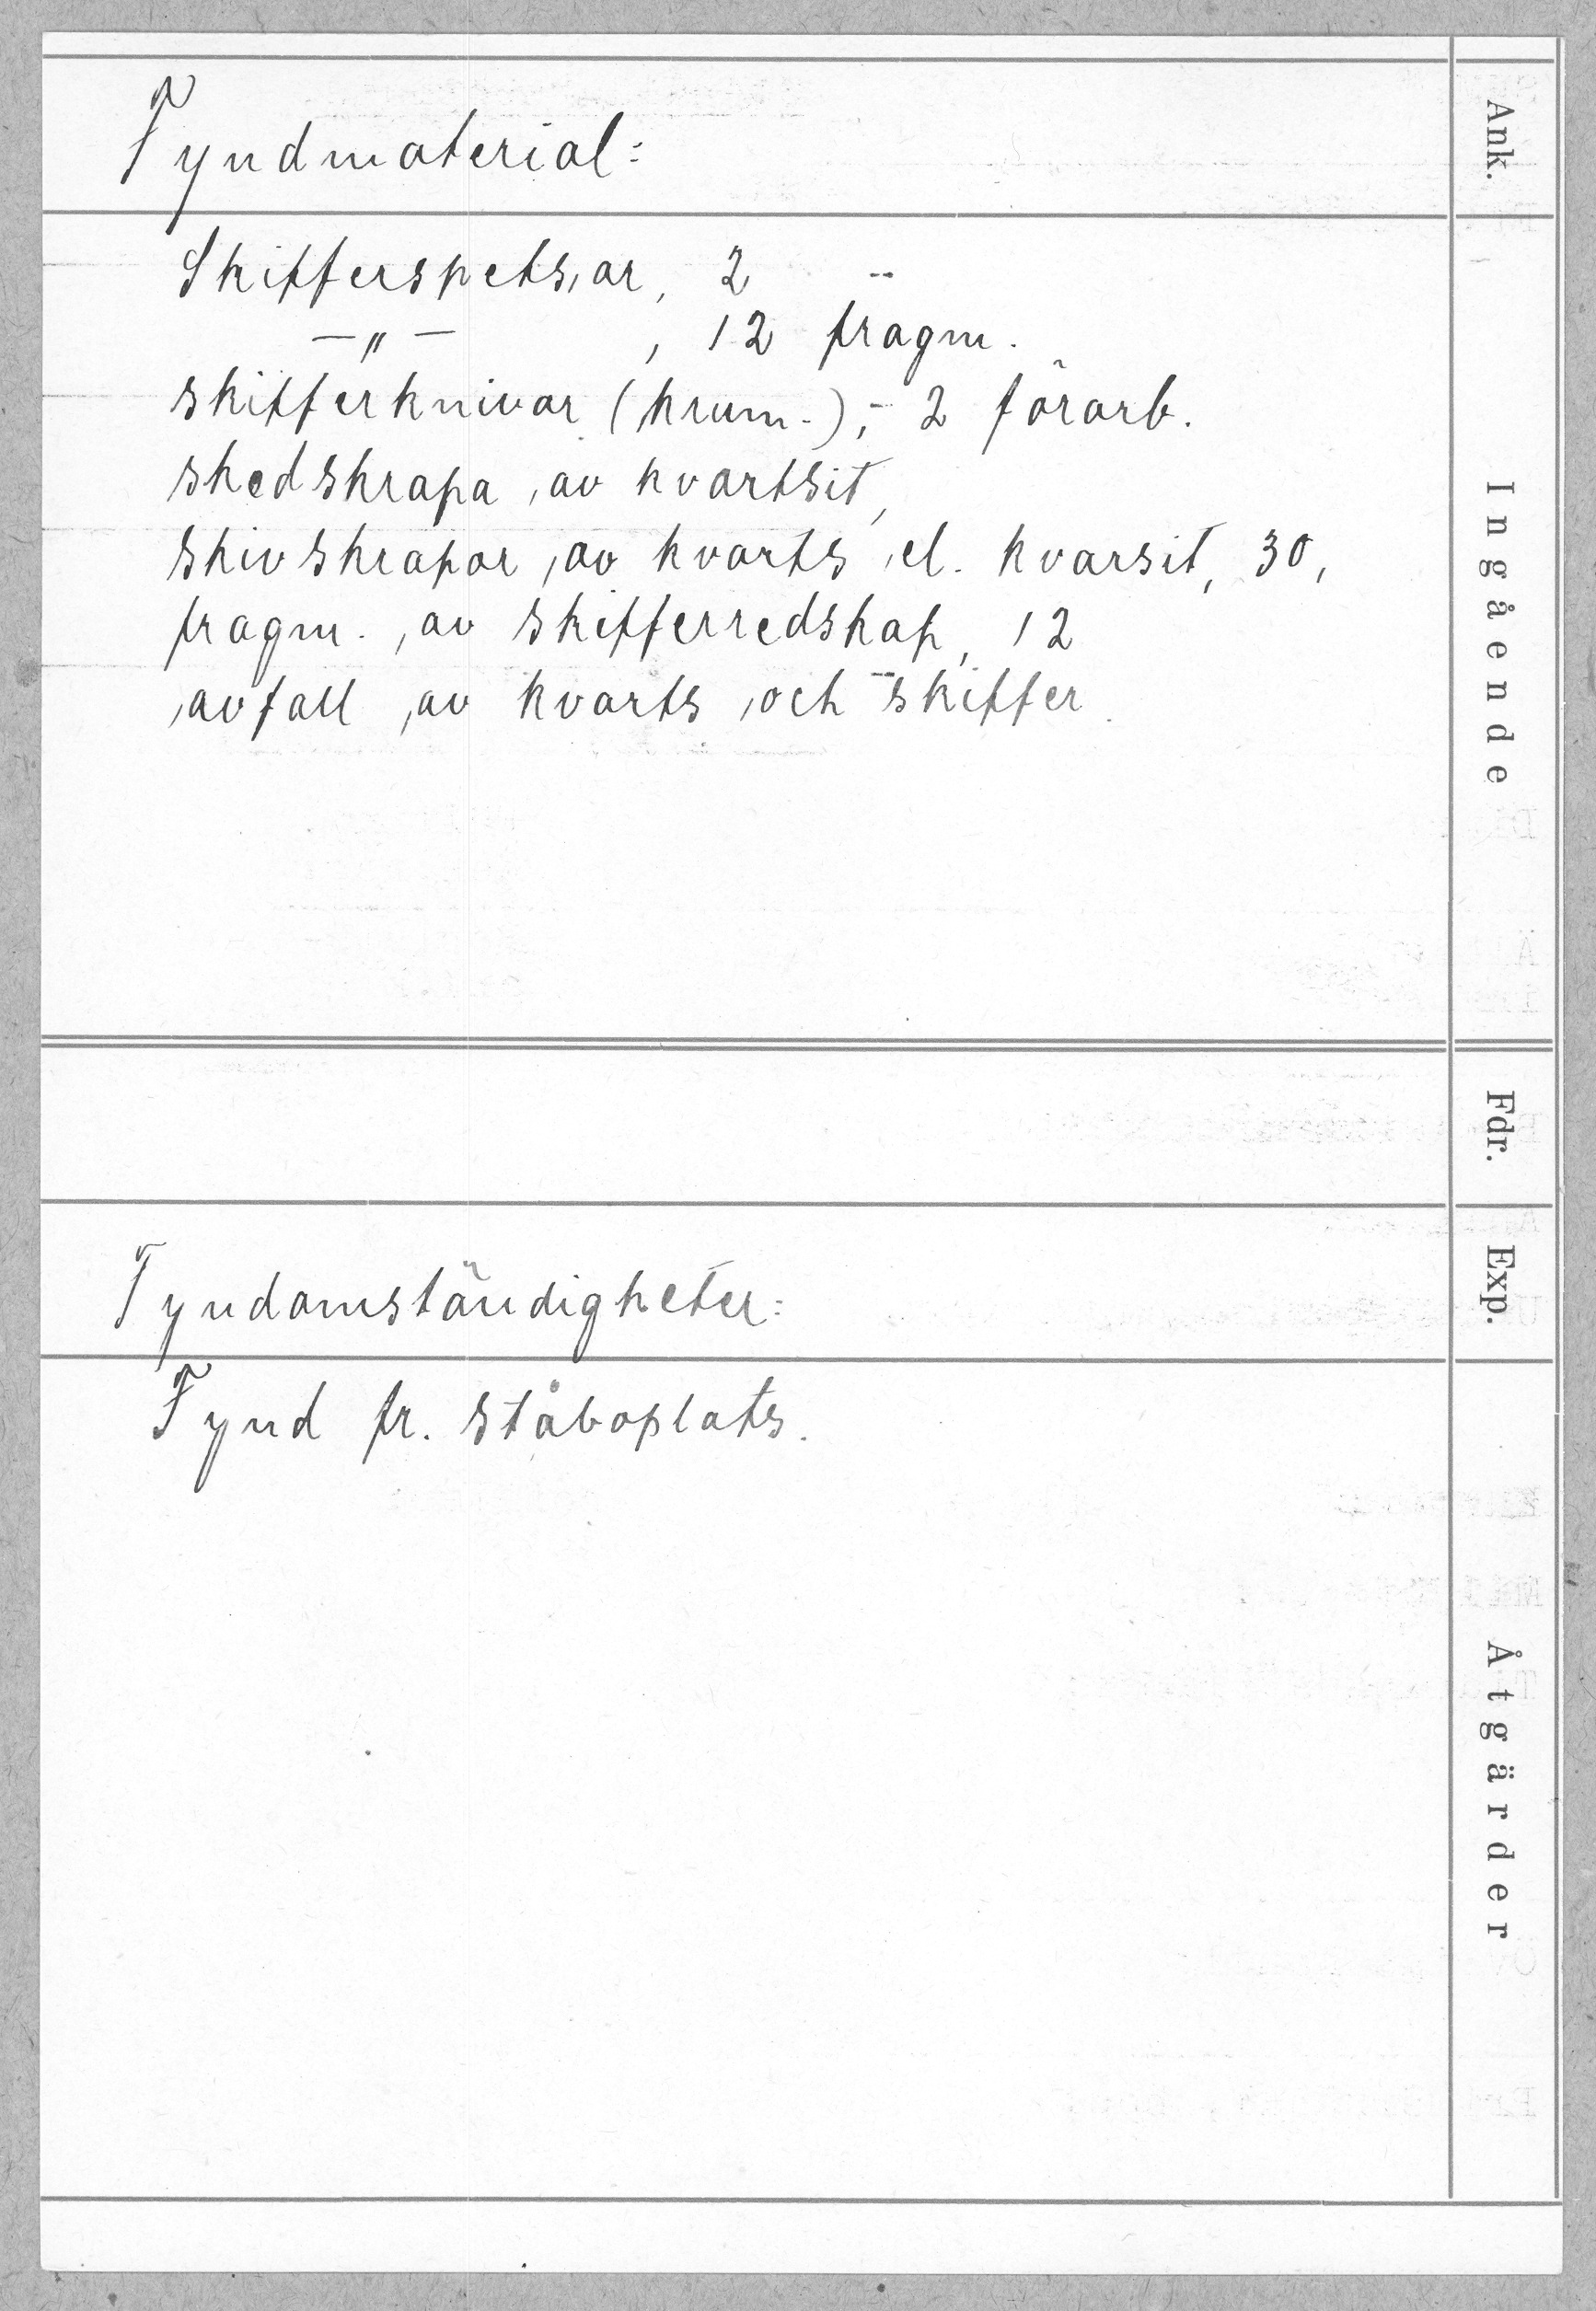 Fyndmaterial:
Skifferspetsar, 2
—„— , 12 fragm.
skifferknivar (krum.), 2 förarb.
skedskrapa av kvartsit,
skivskrapor av kvarts el. kvarsit, 30,
fragm. av skifferredskap, 12
avfall av kvarts och skiffer.
Fyndomständigheter:
Fynd fr. ståboplats.
Ank.
Ingående
Fdr.
Exp.
Åtgärder